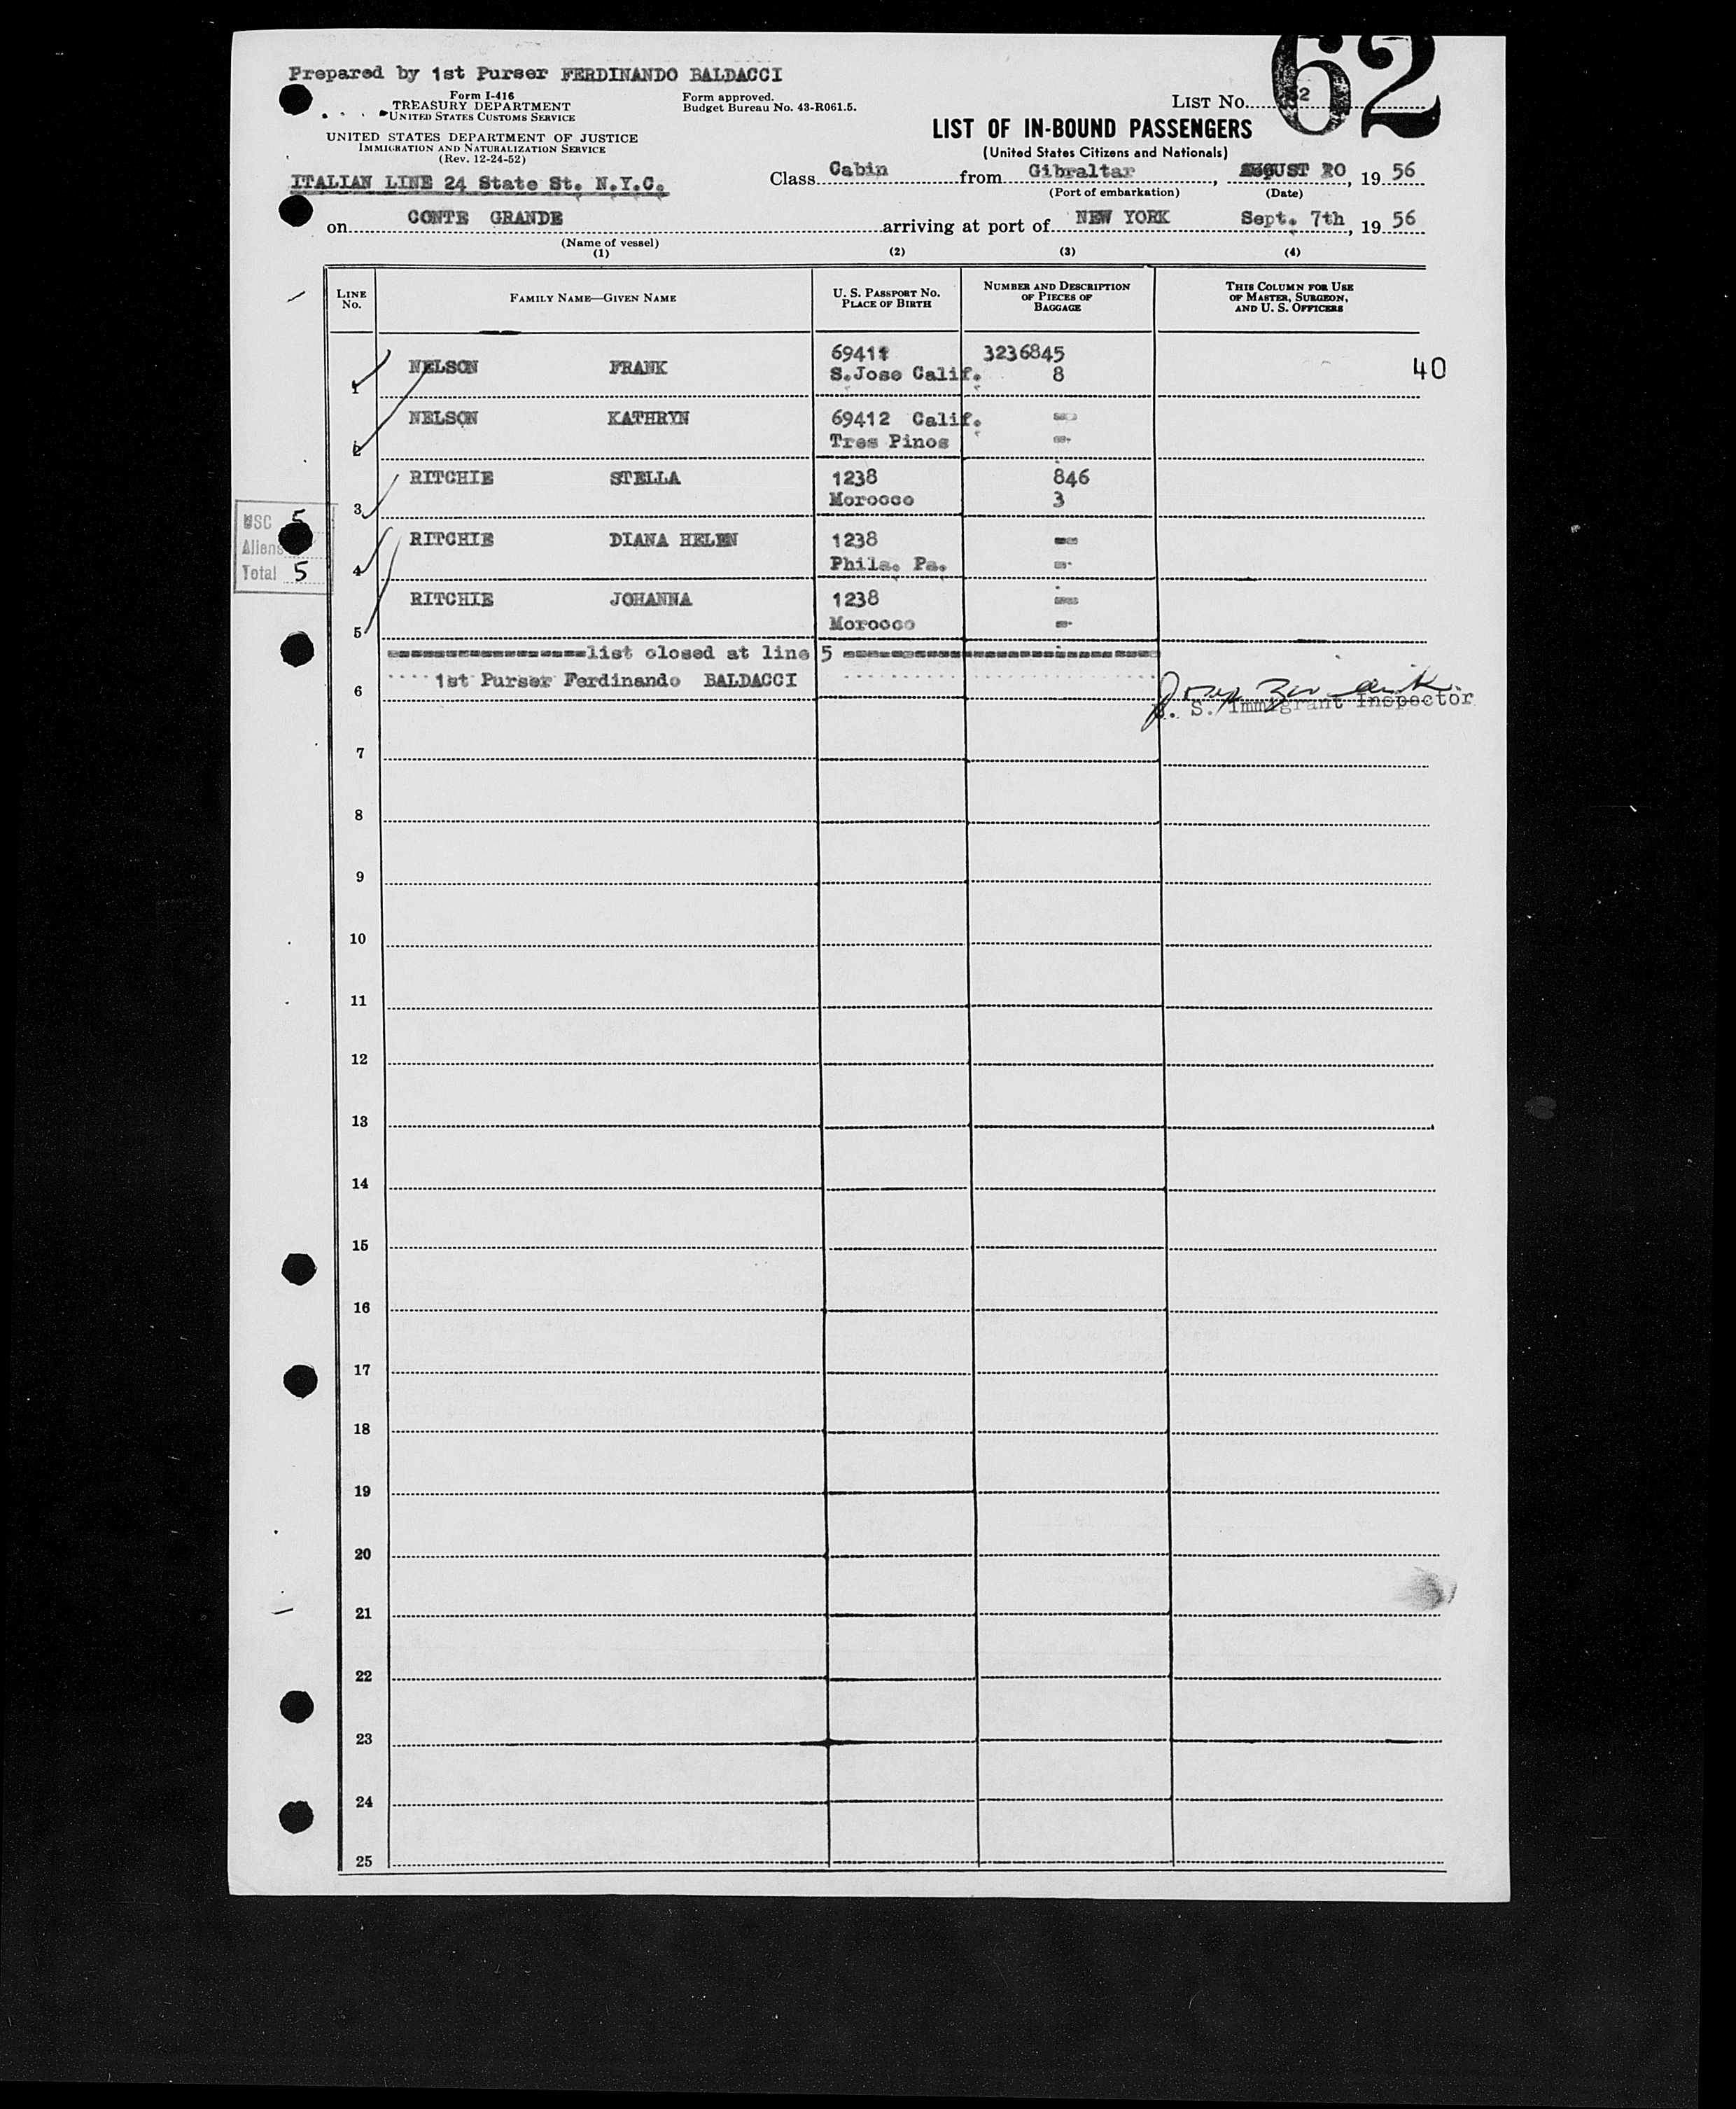 62
Prepared by 1st Purser FERDINANDO BALDACCI
Form I-416
TREASURY DEPARTMENT
UNITED STATES CUSTOMS SERVICE
Form approved.
Budget Bureau No. 43-R061.5.
LIST No.
UNITED STATES DEPARTMENT OF JUSTICE
IMMIGRATION AND NATURALIZATION SERVICE
(Rev. 12-24-52)
LIST OF IN-BOUND PASSENGERS
(United States Citizens and Nationals)
ITALIAN LINE 24 State St. N.Y.C.
Class Cabin from Gibraltar, AUGUST, 19 56
(Port of embarkation) (Date)
on CONTE GRANDE arriving at port of NEW YORK Sept. 7th, 19 56
(Name of vessel)
(1) (2) (3) (4)
LINE No. FAMILY NAME—GIVEN NAME U. S. PASSPORT No. PLACE OF BIRTH NUMBER AND DESCRIPTION OF PIECES OF BAGGAGE THIS COLUMN FOR USE OF MASTER, SURGEON, AND U. S. OFFICERS
69411 3236845
1 NELSON FRANK S.Jose Calif. 8 40
NELSON KATHRYN 69412 Calif. --
2 Tres Pinos -
RITCHIE STELLA 1238 846
3 Morocco 3
USC 5
Aliens
Total 5
RITCHIE DIANA HELEN 1238 --
4 Phila. Pa. -
RITCHIE JOHANNA 1238 --
5 Morocco -
=================list closed at line 5 ===========================
1st Purser Ferdinando BALDACCI
6
U. S. Immigrant Inspector
7
8
9
10
11
12
13
14
15
16
17
18
19
20
21
22
23
24
25